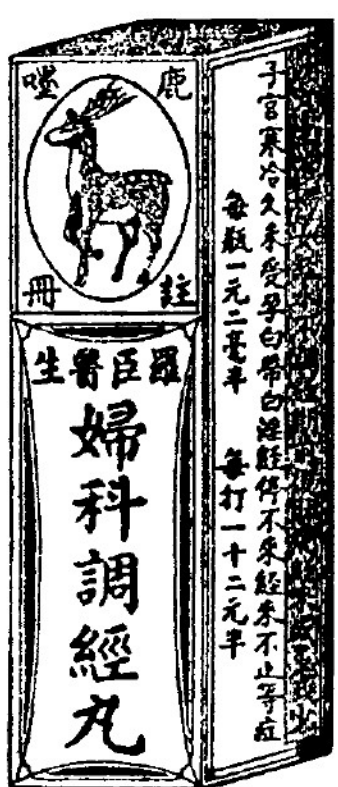 鹿嘜
註冊
羅臣醫生
婦科調經丸
子宮寒冷久未受孕白帶白淫經停不來經來不止等症
每瓶一元二毫半
每打一十二元半